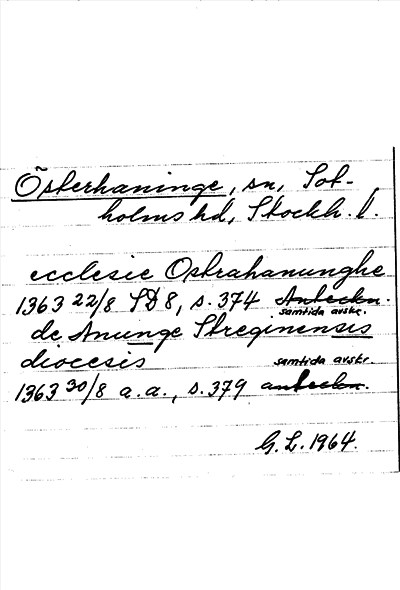 Österhaninge, sn, Sot-
holms hd, Stockh. l.
ecclesie Ostrahanunghe
1363 22/8 SD 8, s. 374 Anteckn.
samtida avskr.
de Anunge Streginensis
diocesis
samtida avskr
1363 30/8 a.a., s. 379 anteckn.
G. L. 1964.